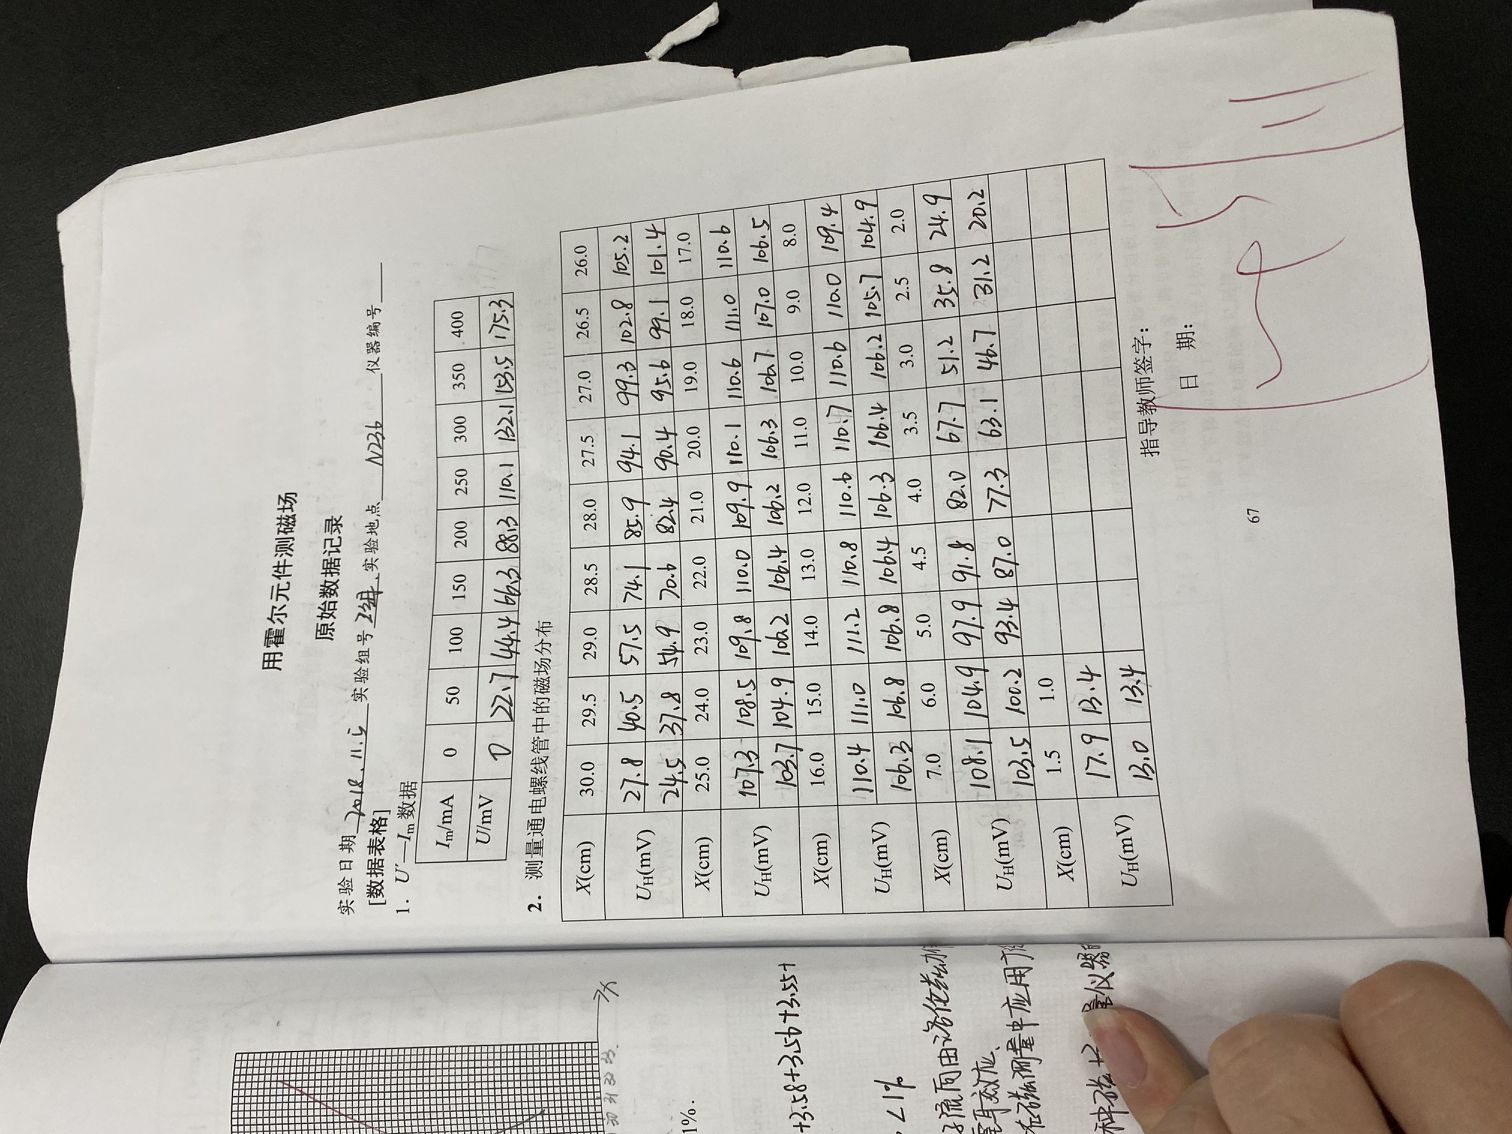 用霍尔元件测磁场
原始数据记录
实验日期 2018.11.5 实验组号 实验地点 N236 仪器编号
[数据表格]
1. U′—Im 数据
Im/mA 0 50 100 150 200 250 300 350 400
U/mV 0 22.7 44.4 66.3 88.3 110.1 132.1 153.5 175.3
2. 测量通电螺线管中的磁场分布
X(cm) 30.0 29.5 29.0 28.5 28.0 27.5 27.0 26.5 26.0
UH(mV) 27.8 40.5 57.5 74.1 85.9 94.1 99.3 102.8 105.2
24.5 37.8 54.9 70.6 82.4 90.4 95.6 99.1 101.4
X(cm) 25.0 24.0 23.0 22.0 21.0 20.0 19.0 18.0 17.0
UH(mV) 107.3 108.5 109.8 110.0 109.9 110.1 110.6 111.0 110.6
103.7 104.9 106.2 106.4 106.2 106.3 106.7 107.0 106.5
X(cm) 16.0 15.0 14.0 13.0 12.0 11.0 10.0 9.0 8.0
UH(mV) 110.4 111.0 111.2 110.8 110.6 110.7 110.6 110.0 109.4
106.3 106.8 106.8 106.4 106.3 106.4 106.2 105.7 104.9
X(cm) 7.0 6.0 5.0 4.5 4.0 3.5 3.0 2.5 2.0
UH(mV) 108.1 104.9 97.9 91.8 82.0 67.7 51.2 35.8 24.9
103.5 100.2 93.4 87.0 77.3 63.1 46.7 31.2 20.2
X(cm) 1.5 1.0
UH(mV) 17.9 13.4
13.0 13.4
指导教师签字：
日 期：
5/11
67
30 31 32 33 X
1%.
+3.58+3.56+3.55+
<1%
流而由洛伦兹力
霍耳效应.
在磁测量中应用
种磁 量仪器